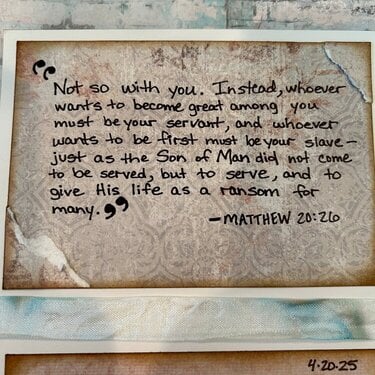 “Not so with you. Instead, whoever
wants to become great among you
must be your servant, and whoever
wants to be first must be your slave –
just as the Son of Man did not come
to be served, but to serve, and to
give His life as a ransom for
many.”
— MATTHEW 20:26
4·20·25